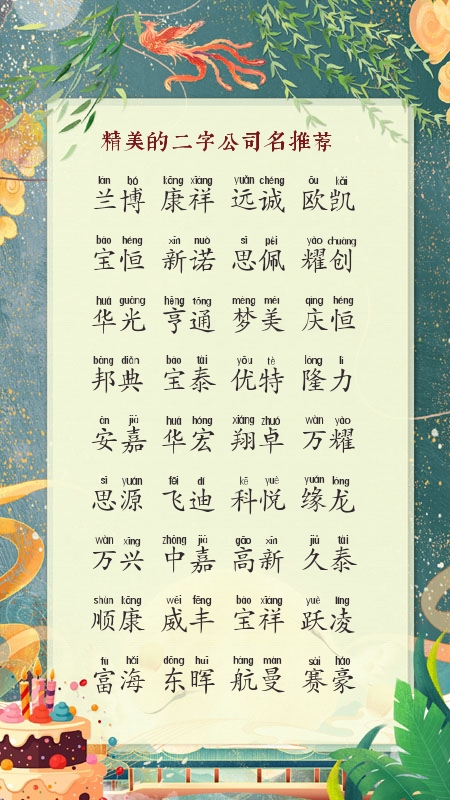 精美的二字公司名推荐
lán bó kāng xiáng yuǎn chéng ōu kǎi
兰博 康祥 远诚 欧凯
bǎo héng xīn nuò sī pèi yào chuàng
宝恒 新诺 思佩 耀创
huá guāng hēng tōng mèng měi qìng héng
华光 亨通 梦美 庆恒
bāng diǎn bǎo tài yōu tè lóng lì
邦典 宝泰 优特 隆力
ān jiā huá hóng xiáng zhuó wàn yào
安嘉 华宏 翔卓 万耀
sī yuán fēi dí kē yuè yuán lóng
思源 飞迪 科悦 缘龙
wàn xīng zhōng jiā gāo xīn jiǔ tài
万兴 中嘉 高新 久泰
shùn kāng wēi fēng bǎo xiáng yuè líng
顺康 威丰 宝祥 跃凌
fù hǎi dōng huī háng màn sài háo
富海 东晖 航曼 赛豪